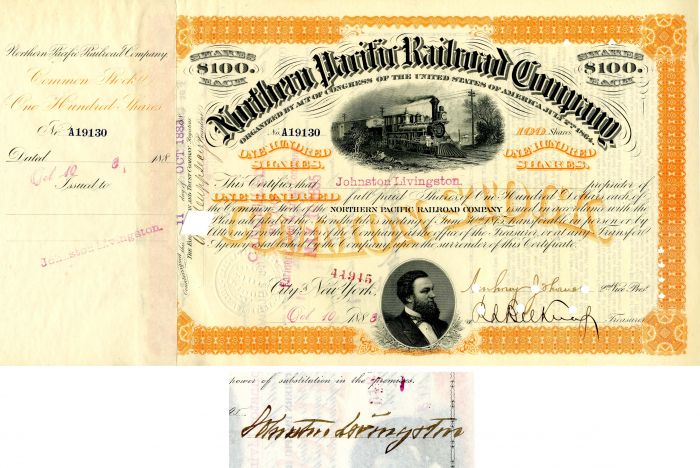 Northern Pacific Railroad Company.
Common Stock
One Hundred Shares
No. A19130
Dated Oct 10 1883.
Issued to
Johnston Livingston.
11 day of OCT 1883
SHARES $100. EACH
SHARES $100. EACH
Northern Pacific Railroad Company
ORGANIZED BY ACT OF CONGRESS OF THE UNITED STATES OF AMERICA JULY 2ND 1864.
No. A19130
Shares
ONE HUNDRED SHARES.
ONE HUNDRED SHARES.
This Certifies that Johnston Livingston. proprietor of
ONE HUNDRED full paid Shares of One Hundred Dollars each, of
the Common Stock of the NORTHERN PACIFIC RAILROAD COMPANY
Attorney on the Books of the Company at the office of the Treasurer, or at any Transfer
Agency established by the Company upon the surrender of this Certificate.
44945
City of New York, Oct 10 1883
Vice Prest.
Treasurer
power of substitution in the premises.
Johnston Livingston